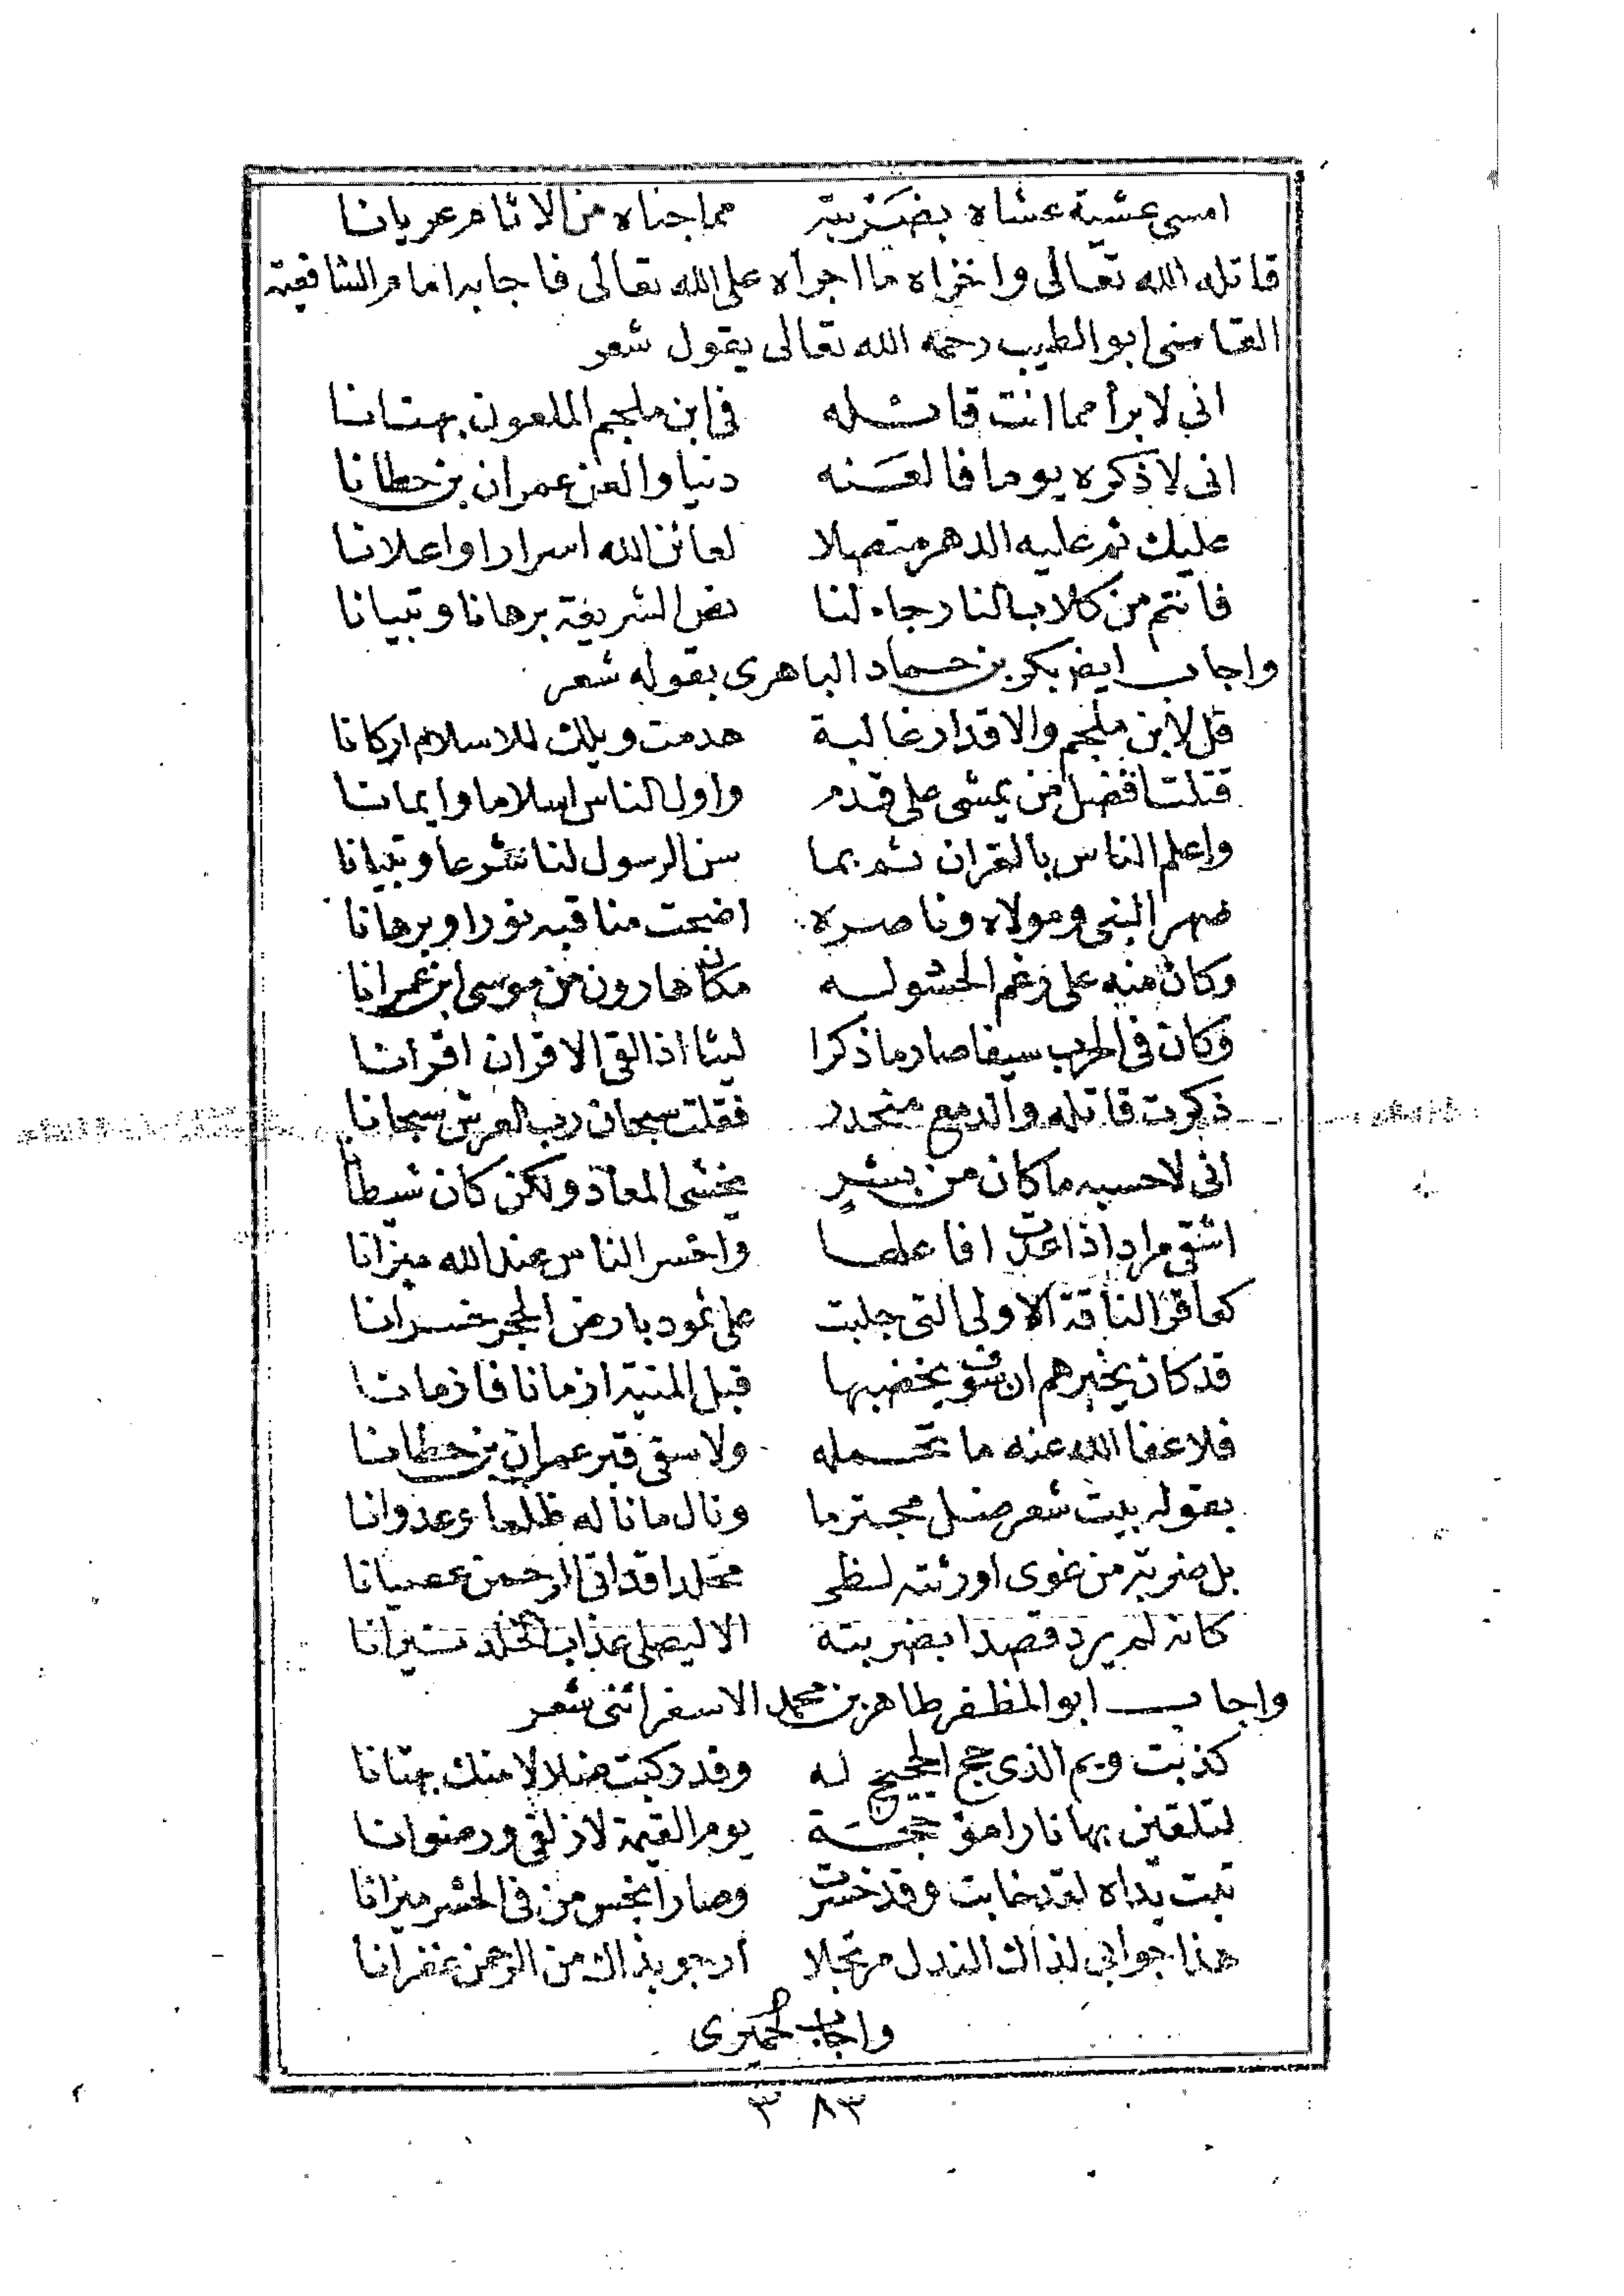 امسى عشية عشاه بضَرْبته مما جناه من الاثام عريانا
قاتله الله تعالى واخزاه ما اجرأه على الله تعالى فاجابه امام الشافعية
القاضى ابو الطيب رحمه الله تعالى يقول شعر
اني لابرأ مما انت قائله في ابن ملجم الملعون بهتانا
انى لاذكره يوما فالعنه دنيا والعن عمران بن حطانا
عليك ثم عليه الدهر متصلا لعائن الله اسرارا واعلانا
فانتم من كلاب النار جاء لنا نص الشريعة برهانا وتبيانا
واجاب ايض بكر بن حماد الباهرى بقوله شعر
قل لابن ملجم والاقدار غالبة هدمت ويلك للاسلام اركانا
قتلت افضل من يمشى على قدم واول الناس اسلاما وايمانا
واعلم الناس بالقران ثم بما سن الرسول لنا شرعا وتبيانا
صهر النبى ومولاه وناصره اضحت مناقبه نورا وبرهانا
وكان منه على رغم الحسود له مكان هارون من موسى ابن عمرانا
وكان فى الحرب سيفا صارما ذكرا ليثا اذا لقى الاقران اقرانا
ذكرت قاتله والدمع منحدر فقلت سبحان رب العرش سبحانا
انى لاحسبه ما كان من بشرٍ يخشى المعاد ولكن كان شيطانا
اشقى مراد اذا عدت افاعلها واخسر الناس عند الله ميزانا
كعاقر الناقة الاولى التى جلبت على ثمود بارض الحجر خسرانا
قد كان يخبرهم ان سوف يخضبها قبل المنية ازمانا فازمانا
فلا عفا الله عنه ما تحمله ولا سقى قبر عمران بن حطانا
بقوله بيت شعر ضل مجترما ونال ما ناله ظلما وعدوانا
بل ضربة من غوى اورثته لظى مخلدا قد اتى الرحمن عصيانا
كانه لم يرد قصدا بضربته الا ليصلى عذاب الخلد نيرانا
واجاب ابو المظفر طاهر بن محمد الاسفرائنى شعر
كذبت ويم الذى حج الحجيج له وقد ركبت ضلالا منك بهتانا
لتلقين بها نارا مؤججة يوم القيمة لا زلفى ورضوانا
تبت يداه لقد خابت وقد خسرت وصار ابخس من فى الحشر ميزانا
هذا جوابى لذاك النذل مرتجلا أرجو بذاك من الرحمن غفرانا
واجاب الحميرى
٣٨٣